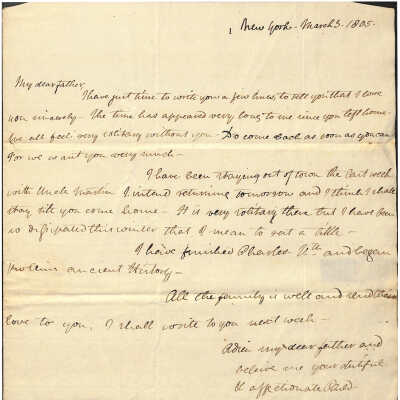 1 New York - March 3. 1805.
My dear father,
I have just time to write you a few lines, to tell you that I love
you sincerely - The time has appeared very long to me since you left home -
We all feel very solitary without you - Do come back as soon as you can
for we want you very much -
I have been staying out of town the last week
with Uncle Martin I intend returning tomorrow and I think I shall
stay till you come home - It is very solitary there but I have been
so dissipated this winter that I mean to rest a little -
I have finished Charles 12th and began
Rollins ancient History -
All the family is well and send their
love to you, I shall write to you next week -
Adieu my dear father and
believe me your dutiful
& affectionate Child